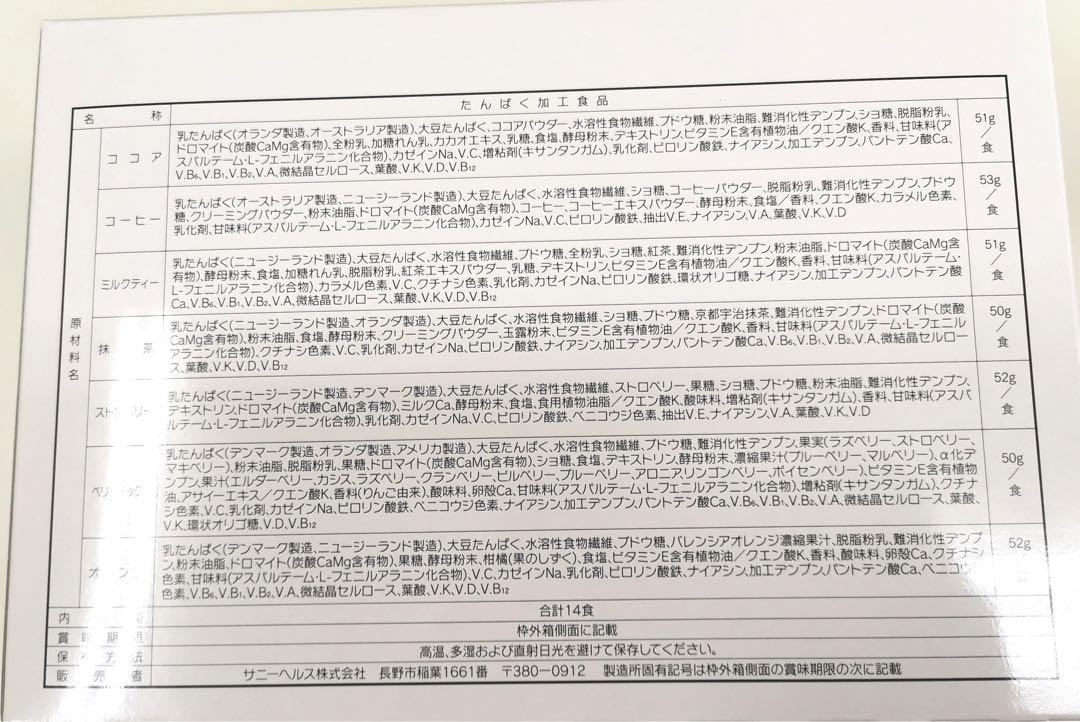 名 称 たんぱく加工食品
ココア
乳たんぱく(オランダ製造、オーストラリア製造)、大豆たんぱく、ココアパウダー、水溶性食物繊維、ブドウ糖、粉末油脂、難消化性デンプン、ショ糖、脱脂粉乳、
ドロマイト(炭酸CaMg含有物)、全粉乳、加糖れん乳、カカオエキス、乳糖、食塩、酵母粉末、デキストリン、ビタミンE含有植物油／クエン酸K、香料、甘味料(ア
スパルテーム・L-フェニルアラニン化合物)、カゼインNa、V.C、増粘剤(キサンタンガム)、乳化剤、ピロリン酸鉄、ナイアシン、加工デンプン、パントテン酸Ca、
V.B6、V.B1、V.B2、V.A、微結晶セルロース、葉酸、V.K、V.D、V.B12
51g／食
コーヒー
乳たんぱく(オーストラリア製造、ニュージーランド製造)、大豆たんぱく、水溶性食物繊維、ショ糖、コーヒーパウダー、脱脂粉乳、難消化性デンプン、ブドウ
糖、クリーミングパウダー、粉末油脂、ドロマイト(炭酸CaMg含有物)、コーヒー、コーヒーエキスパウダー、酵母粉末、食塩／香料、クエン酸K、カラメル色素、
乳化剤、甘味料(アスパルテーム・L-フェニルアラニン化合物)、カゼインNa、V.C、ピロリン酸鉄、抽出V.E、ナイアシン、V.A、葉酸、V.K、V.D
53g／食
ミルクティー
乳たんぱく(ニュージーランド製造)、大豆たんぱく、水溶性食物繊維、ブドウ糖、全粉乳、ショ糖、紅茶、難消化性デンプン、粉末油脂、ドロマイト(炭酸CaMg含
有物)、酵母粉末、食塩、加糖れん乳、脱脂粉乳、紅茶エキスパウダー、乳糖、デキストリン、ビタミンE含有植物油／クエン酸K、香料、甘味料(アスパルテーム・
L-フェニルアラニン化合物)、カラメル色素、V.C、クチナシ色素、乳化剤、カゼインNa、ピロリン酸鉄、環状オリゴ糖、ナイアシン、加工デンプン、パントテン酸
Ca、V.B6、V.B1、V.B2、V.A、微結晶セルロース、葉酸、V.K、V.D、V.B12
51g／食
原材料名
抹 茶
乳たんぱく(ニュージーランド製造、オランダ製造)、大豆たんぱく、水溶性食物繊維、ショ糖、ブドウ糖、京都宇治抹茶、難消化性デンプン、ドロマイト(炭酸
CaMg含有物)、粉末油脂、食塩、酵母粉末、クリーミングパウダー、玉露粉末、ビタミンE含有植物油／クエン酸K、香料、甘味料(アスパルテーム・L-フェニル
アラニン化合物)、クチナシ色素、V.C、乳化剤、カゼインNa、ピロリン酸鉄、ナイアシン、加工デンプン、パントテン酸Ca、V.B6、V.B1、V.B2、V.A、微結晶セルロー
ス、葉酸、V.K、V.D、V.B12
50g／食
ストロベリー
乳たんぱく(ニュージーランド製造、デンマーク製造)、大豆たんぱく、水溶性食物繊維、ストロベリー、果糖、ショ糖、ブドウ糖、粉末油脂、難消化性デンプン、
デキストリン、ドロマイト(炭酸CaMg含有物)、ミルクCa、酵母粉末、食塩、食用植物油脂／クエン酸K、酸味料、増粘剤(キサンタンガム)、香料、甘味料(アスパ
ルテーム・L-フェニルアラニン化合物)、乳化剤、カゼインNa、V.C、ピロリン酸鉄、ベニコウジ色素、抽出V.E、ナイアシン、V.A、葉酸、V.K、V.D
52g／食
乳たんぱく(デンマーク製造、オランダ製造、アメリカ製造)、大豆たんぱく、水溶性食物繊維、ブドウ糖、難消化性デンプン、果実(ラズベリー、ストロベリー、
マキベリー)、粉末油脂、脱脂粉乳、果糖、ドロマイト(炭酸CaMg含有物)、ショ糖、食塩、デキストリン、酵母粉末、濃縮果汁(ブルーベリー、マルベリー)、α化デ
ンプン、果汁(エルダーベリー、カシス、ラズベリー、クランベリー、ビルベリー、ブルーベリー、アロニア、リンゴンベリー、ボイセンベリー)、ビタミンE含有植物
油、アサイーエキス／クエン酸K、香料(りんご由来)、酸味料、卵殻Ca、甘味料(アスパルテーム・L-フェニルアラニン化合物)、増粘剤(キサンタンガム)、クチナ
シ色素、V.C、乳化剤、カゼインNa、ピロリン酸鉄、ベニコウジ色素、ナイアシン、加工デンプン、パントテン酸Ca、V.B6、V.B1、V.B2、V.A、微結晶セルロース、葉酸、
V.K、環状オリゴ糖、V.D、V.B12
50g／食
乳たんぱく(デンマーク製造、ニュージーランド製造)、大豆たんぱく、水溶性食物繊維、ブドウ糖、バレンシアオレンジ濃縮果汁、脱脂粉乳、難消化性デンプ
ン、粉末油脂、ドロマイト(炭酸CaMg含有物)、果糖、酵母粉末、柑橘(果のしずく)、食塩、ビタミンE含有植物油／クエン酸K、香料、酸味料、卵殻Ca、クチナシ
色素、甘味料(アスパルテーム・L-フェニルアラニン化合物)、V.C、カゼインNa、乳化剤、ピロリン酸鉄、ナイアシン、加工デンプン、パントテン酸Ca、ベニコウジ
色素、V.B6、V.B1、V.B2、V.A、微結晶セルロース、葉酸、V.K、V.D、V.B12
52g
合計14食
賞味期限 枠外箱側面に記載
保存方法 高温、多湿および直射日光を避けて保存してください。
販売者 サニーヘルス株式会社 長野市稲葉1661番 〒380-0912 製造所固有記号は枠外箱側面の賞味期限の次に記載